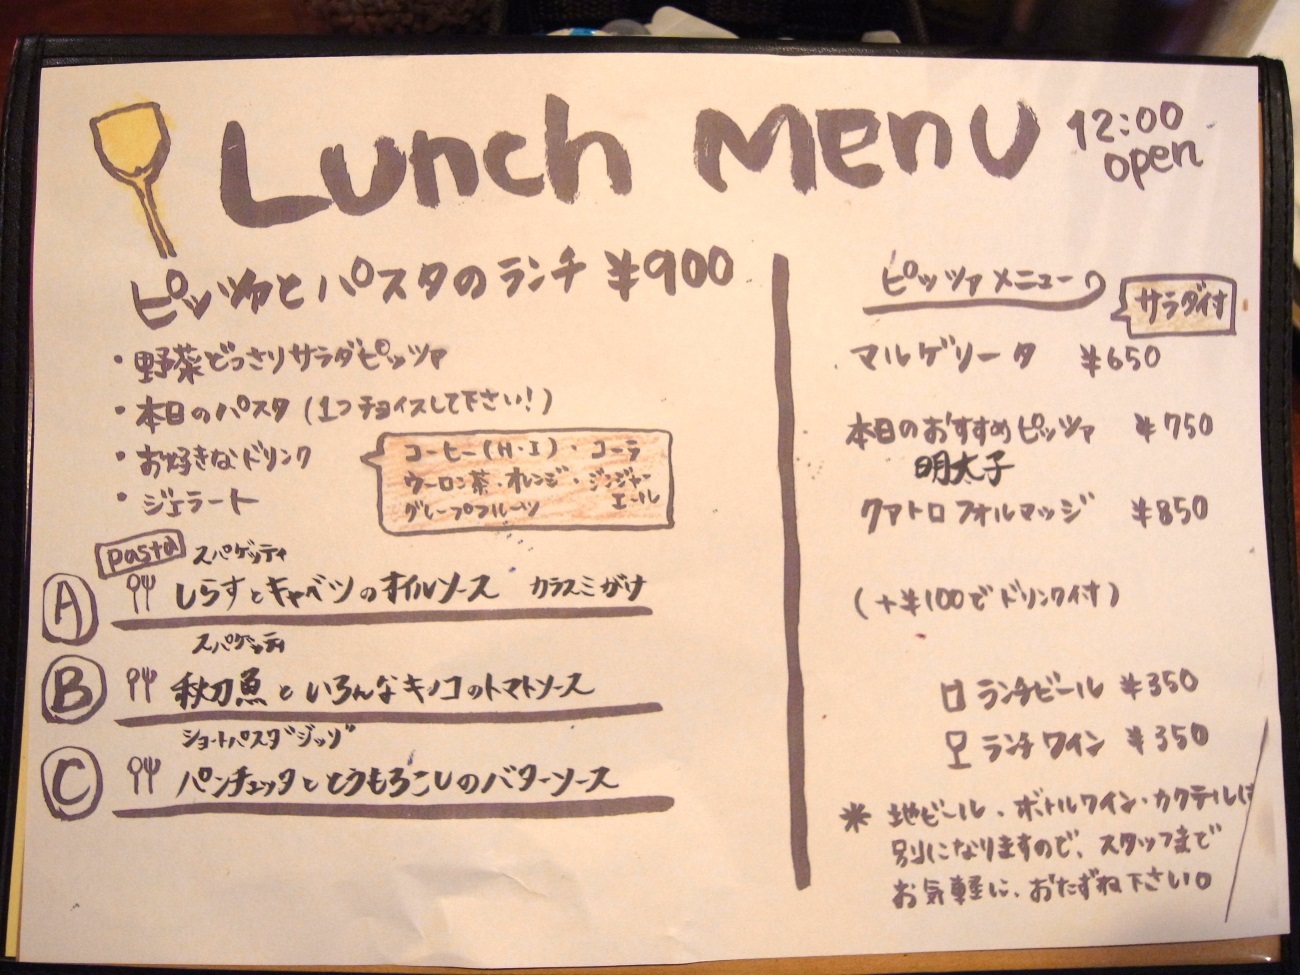 Lunch Menu
12:00
open
ピッツァとパスタのランチ ¥900
・野菜どっさりサラダピッツァ
・本日のパスタ (1つチョイスして下さい!)
・お好きなドリンク
・ジェラート
コーヒー(H・I)・コーラ
ウーロン茶・オレンジ・ジンジャー
エール
グレープフルーツ
pasta スパゲッティ
Ⓐ しらすとキャベツのオイルソース カラスミがけ
スパゲッティ
Ⓑ 秋刀魚といろんなキノコのトマトソース
ショートパスタ"ジッリ"
Ⓒ パンチェッタととうもろこしのバターソース
ピッツァメニュー
サラダ付
マルゲリータ ¥650
本日のおすすめピッツァ ¥750
明太子
クアトロフォルマッジ ¥850
(+¥100でドリンク付)
ランチビール ¥350
ランチワイン ¥350
＊地ビール、ボトルワイン・カクテルは
別になりますので、スタッフまで
お気軽に、おたずね下さい。